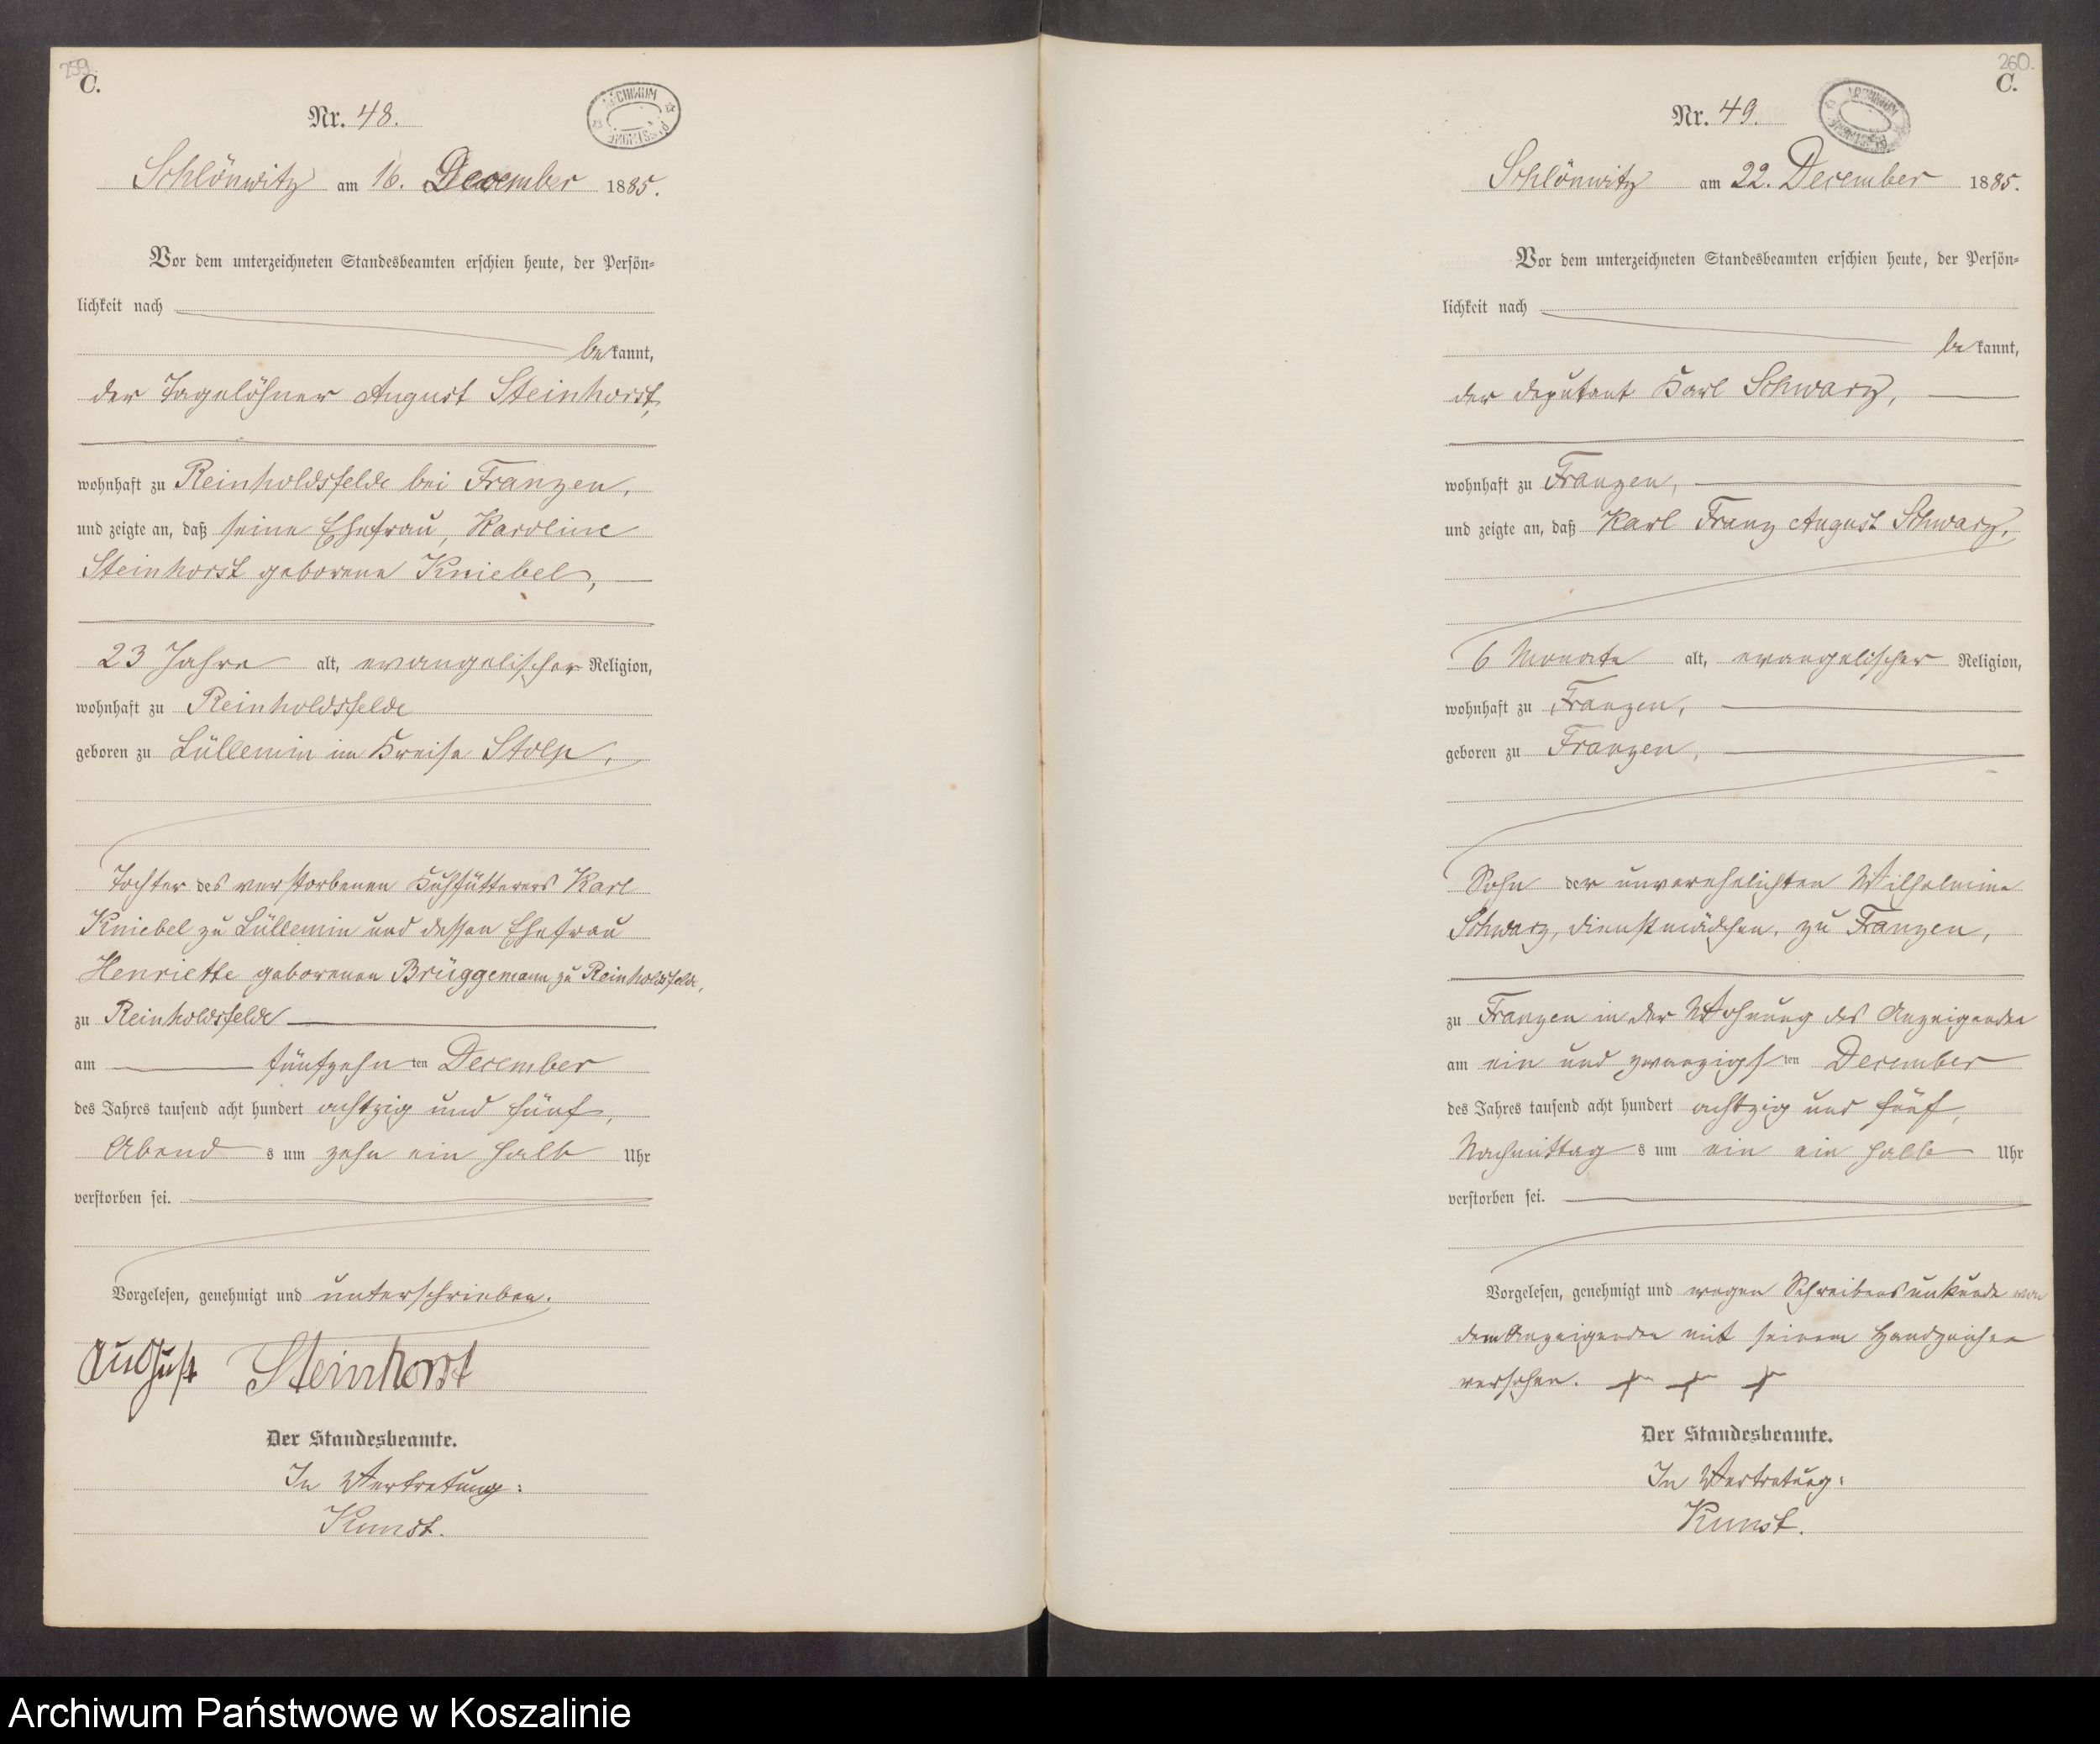 259.
C.
Nr. 48.
Schlönwitz am 16. December 1885.
Vor dem unterzeichneten Standesbeamten erschien heute, der Persön-
lichkeit nach
bekannt,
der Tagelöhner August Steinhorst,
wohnhaft zu Reinholdsfelde bei Franzen,
und zeigte an, daß seine Ehefrau, Karoline
Steinhorst geborene Kniebel,
23 Jahre alt, evangelischer Religion,
wohnhaft zu Reinholdsfelde
geboren zu Lüllemin im Kreise Stolp,
Tochter des verstorbenen Kuhfütterers Karl
Kniebel zu Lüllemin und dessen Ehefrau
Henriette geborenen Brüggemann zu Reinholdsfelde,
zu Reinholdsfelde
am fünfzehn ten December
des Jahres tausend acht hundert achtzig und fünf,
Abend s um zehn ein halb Uhr
verstorben sei.
Vorgelesen, genehmigt und unterschrieben.
August Steinhorst
Der Standesbeamte.
In Vertretung:
Kunst.
260.
C.
Nr. 49.
Schlönwitz am 22. December 1885.
Vor dem unterzeichneten Standesbeamten erschien heute, der Persön-
lichkeit nach
bekannt,
der Deputant Karl Schwarz,
wohnhaft zu Franzen,
und zeigte an, daß Karl Franz August Schwarz,
6 Monate alt, evangelischer Religion,
wohnhaft zu Franzen,
geboren zu Franzen,
Sohn der unverehelichten Wilhelmine
Schwarz, Dienstmädchen, zu Franzen,
zu Franzen in der Wohnung des Anzeigenden
am ein und zwanzigs ten December
des Jahres tausend acht hundert achtzig und fünf,
Nachmittag s um ein ein halb Uhr
verstorben sei.
Vorgelesen, genehmigt und wegen Schreibensunkunde von
dem Anzeigenden mit seinem Handzeichen
versehen. + + +
Der Standesbeamte.
In Vertretung:
Kunst.
Archiwum Państwowe w Koszalinie